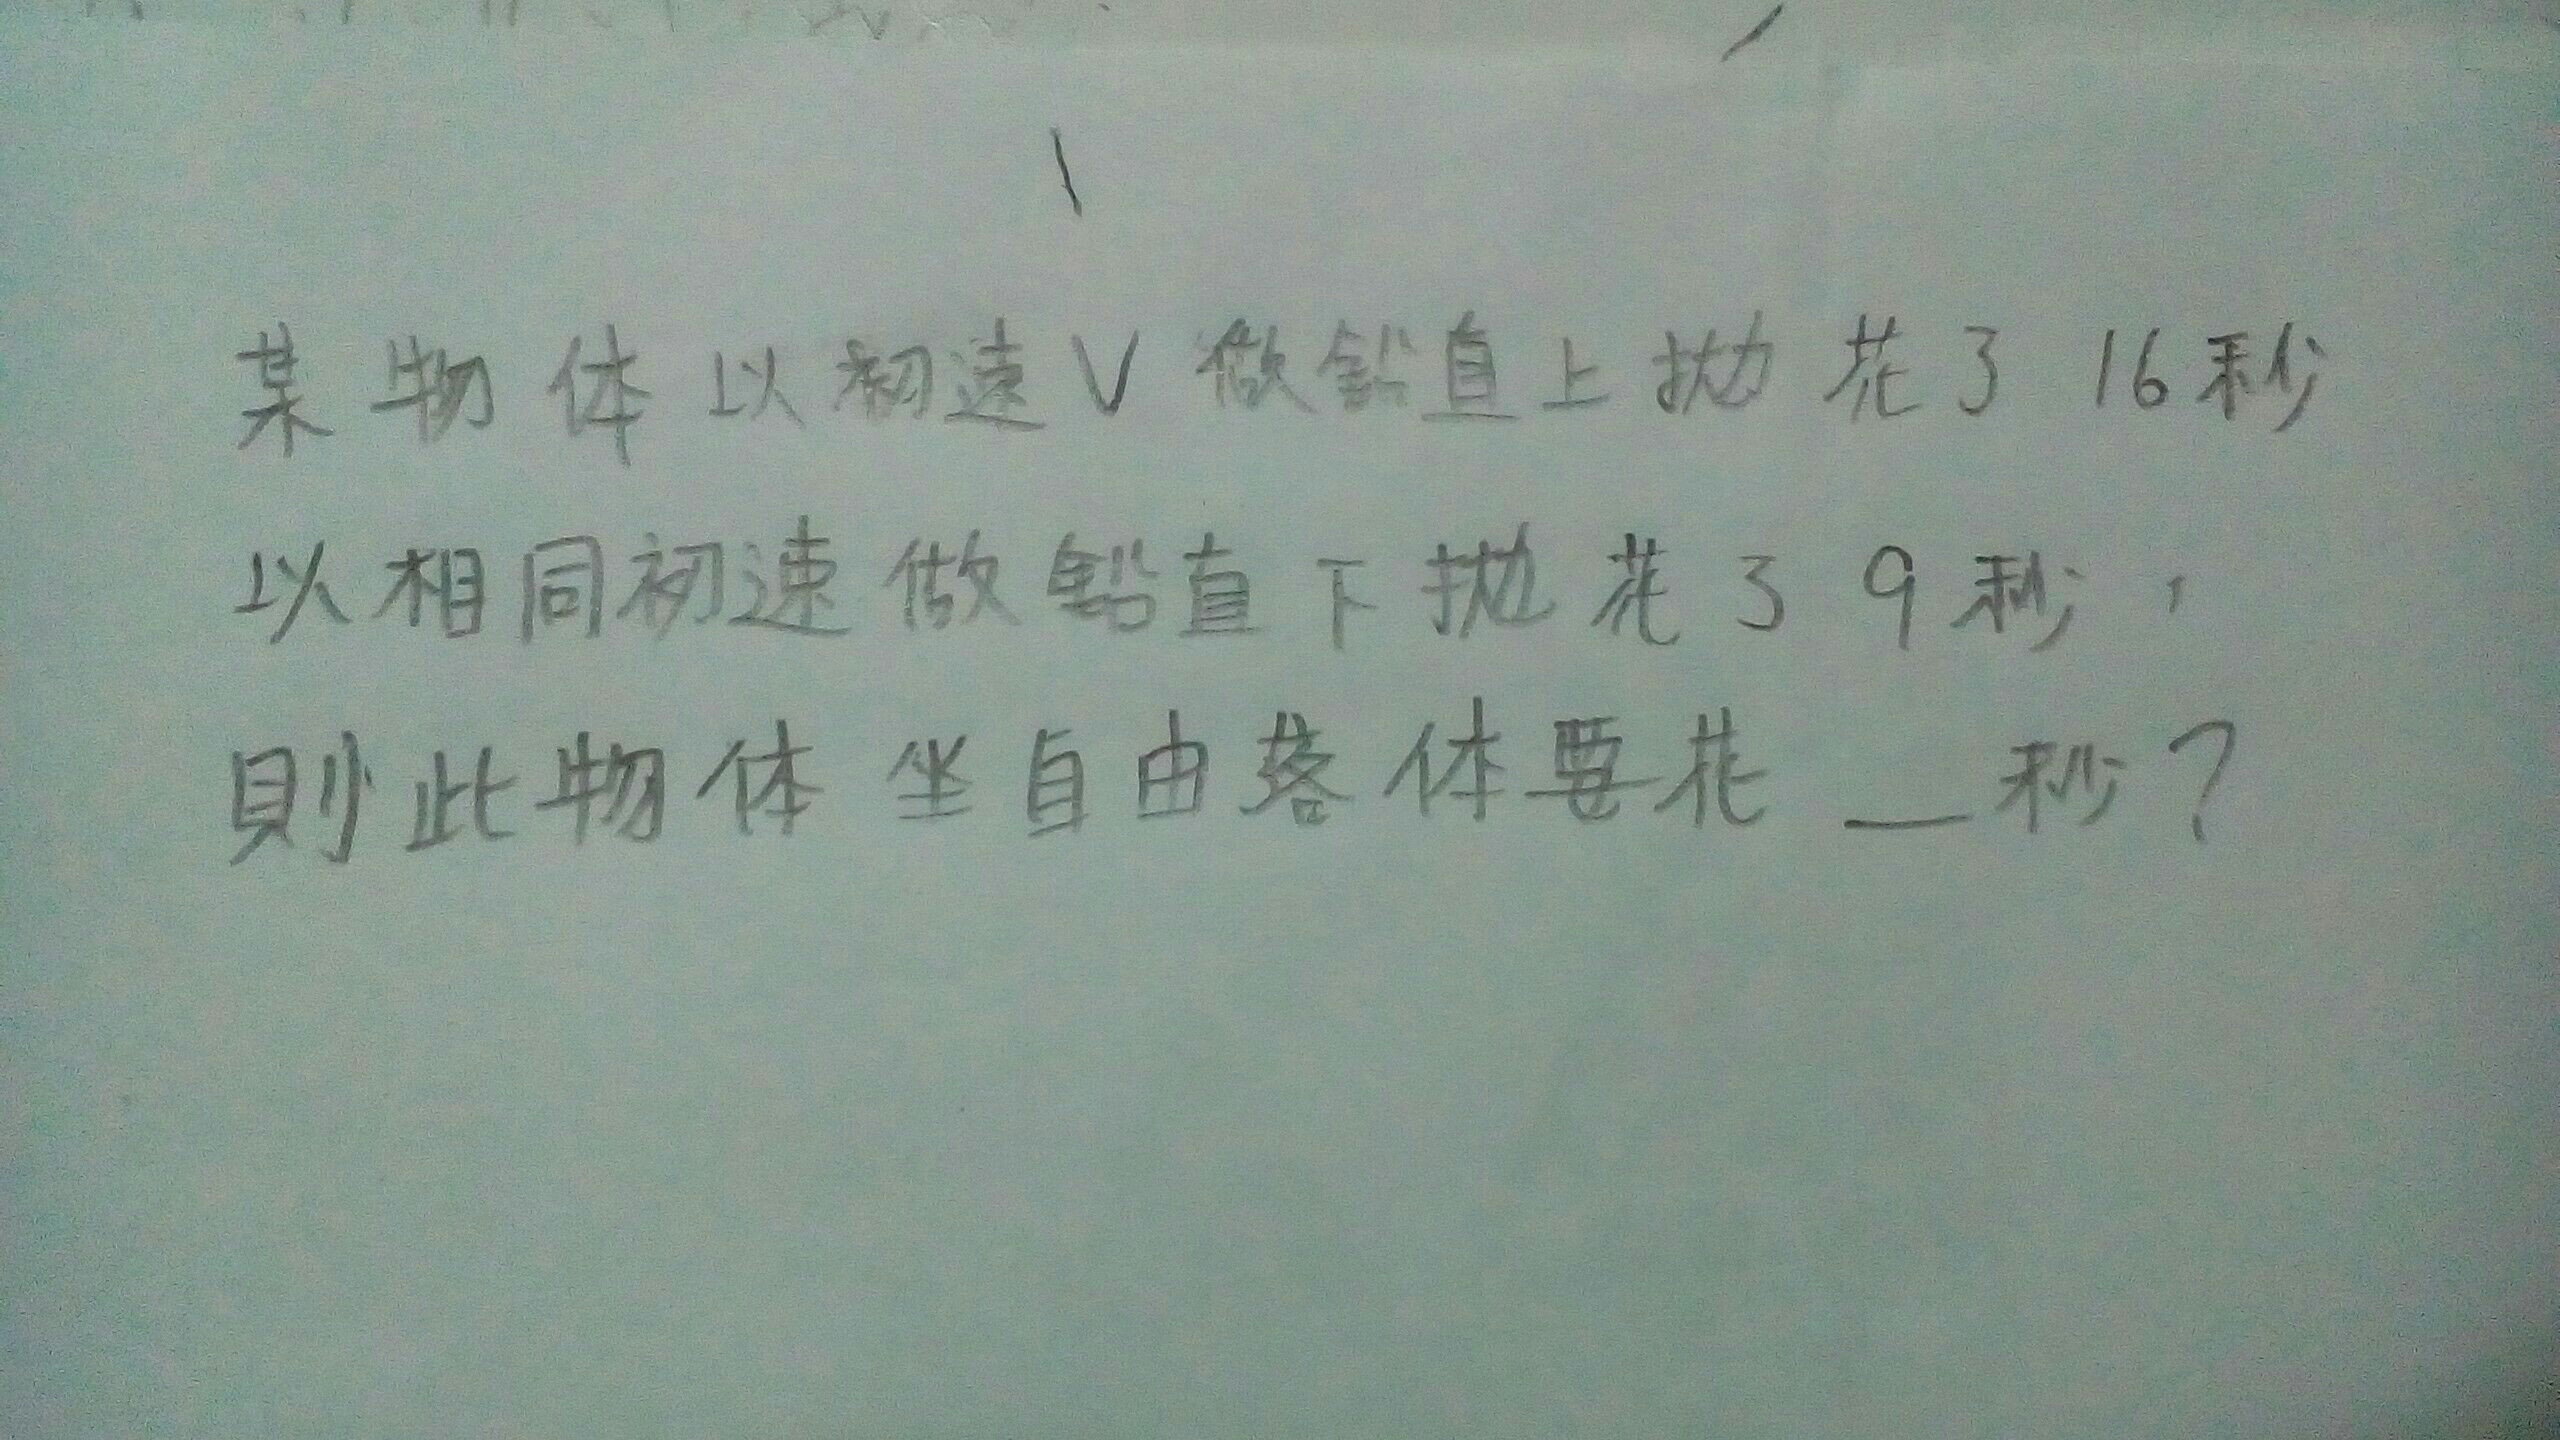 某物体以初速V做鉛直上拋花了16秒
以相同初速做鉛直下拋花了9秒，
則此物体坐自由落体要花＿秒？